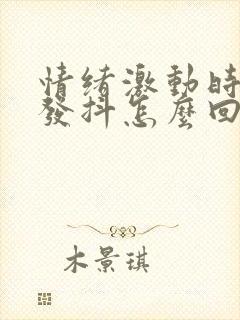 情緒激動時
發抖怎麼回
木景琪